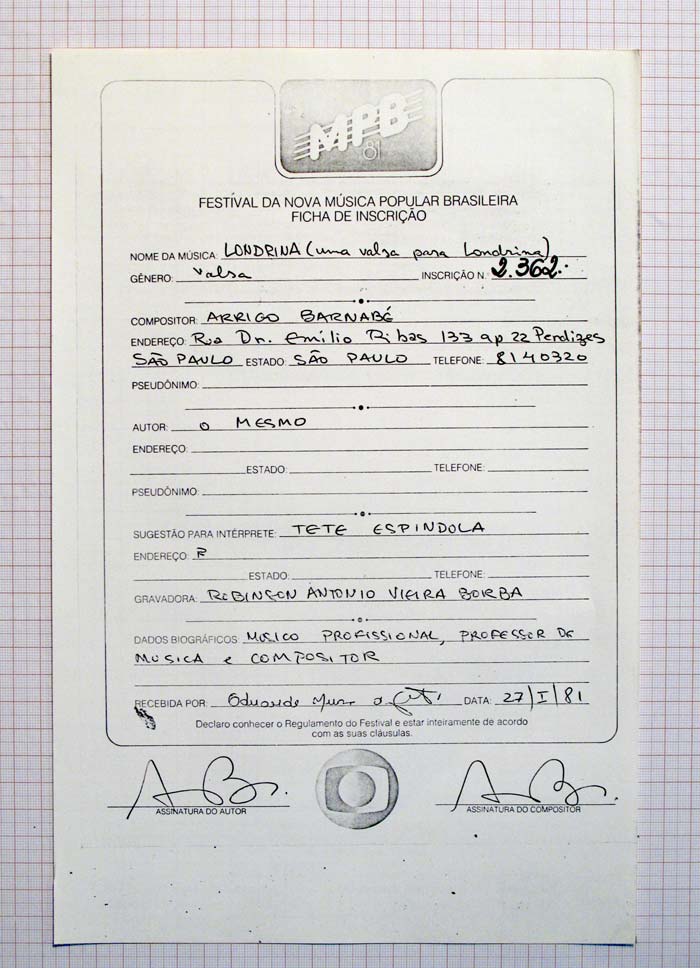 MPB
81
FESTIVAL DA NOVA MÚSICA POPULAR BRASILEIRA
FICHA DE INSCRIÇÃO
NOME DA MÚSICA: LONDRINA (uma valsa para Londrina)
GÊNERO: Valsa INSCRIÇÃO N.º 2.362
COMPOSITOR: ARRIGO BARNABÉ
ENDEREÇO: Rua Dr. Emílio Ribas 133 ap 22 Perdizes
SÃO PAULO ESTADO: SÃO PAULO TELEFONE: 8140320
PSEUDÔNIMO:
AUTOR: O MESMO
ENDEREÇO:
ESTADO: TELEFONE:
PSEUDÔNIMO:
SUGESTÃO PARA INTÉRPRETE: TETE ESPINDOLA
ENDEREÇO: R
ESTADO: TELEFONE:
GRAVADORA: ROBINSON ANTONIO VIEIRA BORBA
DADOS BIOGRÁFICOS: MÚSICO PROFISSIONAL, PROFESSOR DE
MÚSICA e COMPOSITOR
RECEBIDA POR: Eduardo DATA: 27/I/81
Declaro conhecer o Regulamento do Festival e estar inteiramente de acordo
com as suas cláusulas.
ASSINATURA DO AUTOR ASSINATURA DO COMPOSITOR